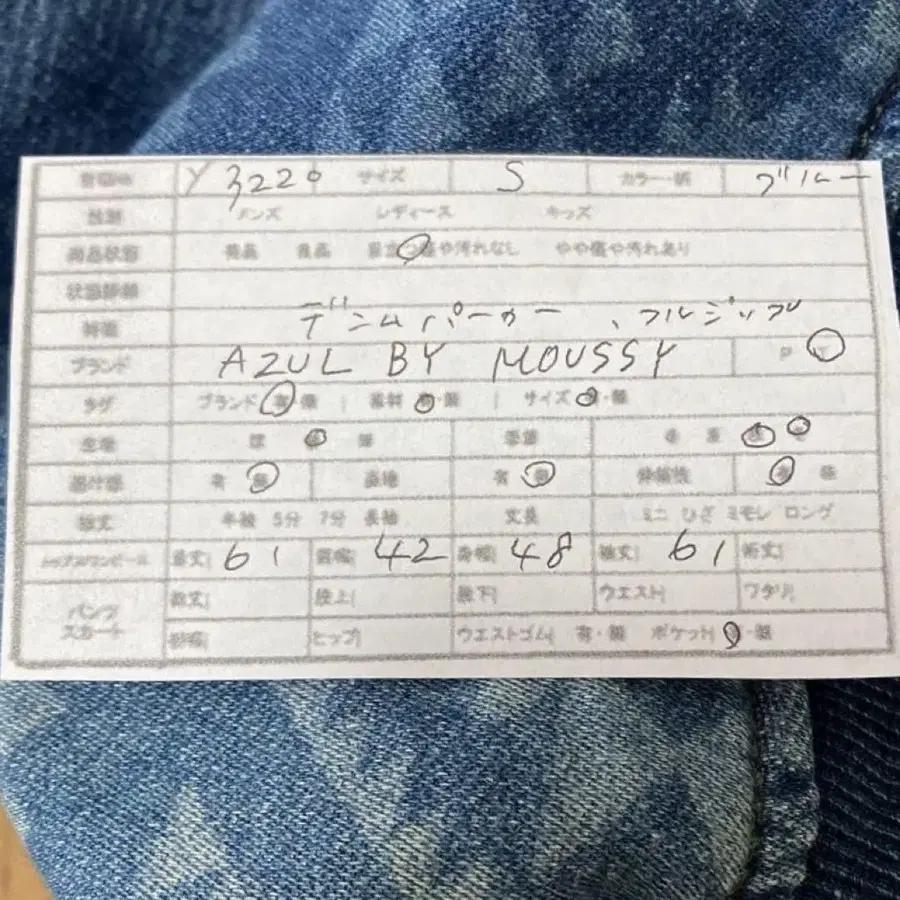 管理No Y3220 サイズ S カラー・柄 ブルー
種別 メンズ レディース キッズ
商品状態 美品 良品 目立つ傷や汚れなし やや傷や汚れあり
状態詳細
特徴 デニムパーカー、フルジップ
ブランド AZUL BY MOUSSY P
タグ ブランド 有・無 | 素材 有・無 | サイズ 有・無
生地 厚 薄 季節 春 夏
透け感 有 無 裏地 有 無 伸縮性 有 無
袖丈 半袖 5分 7分 長袖 丈長 ミニ ひざ ミモレ ロング
トップス/ワンピース 着丈| 61 肩幅| 42 身幅| 48 袖丈| 61 裄丈|
パンツ スカート 総丈| 股上| 股下| ウエスト| ワタリ|
裾幅| ヒップ| ウエストゴム| 有・無 ポケット| 有・無